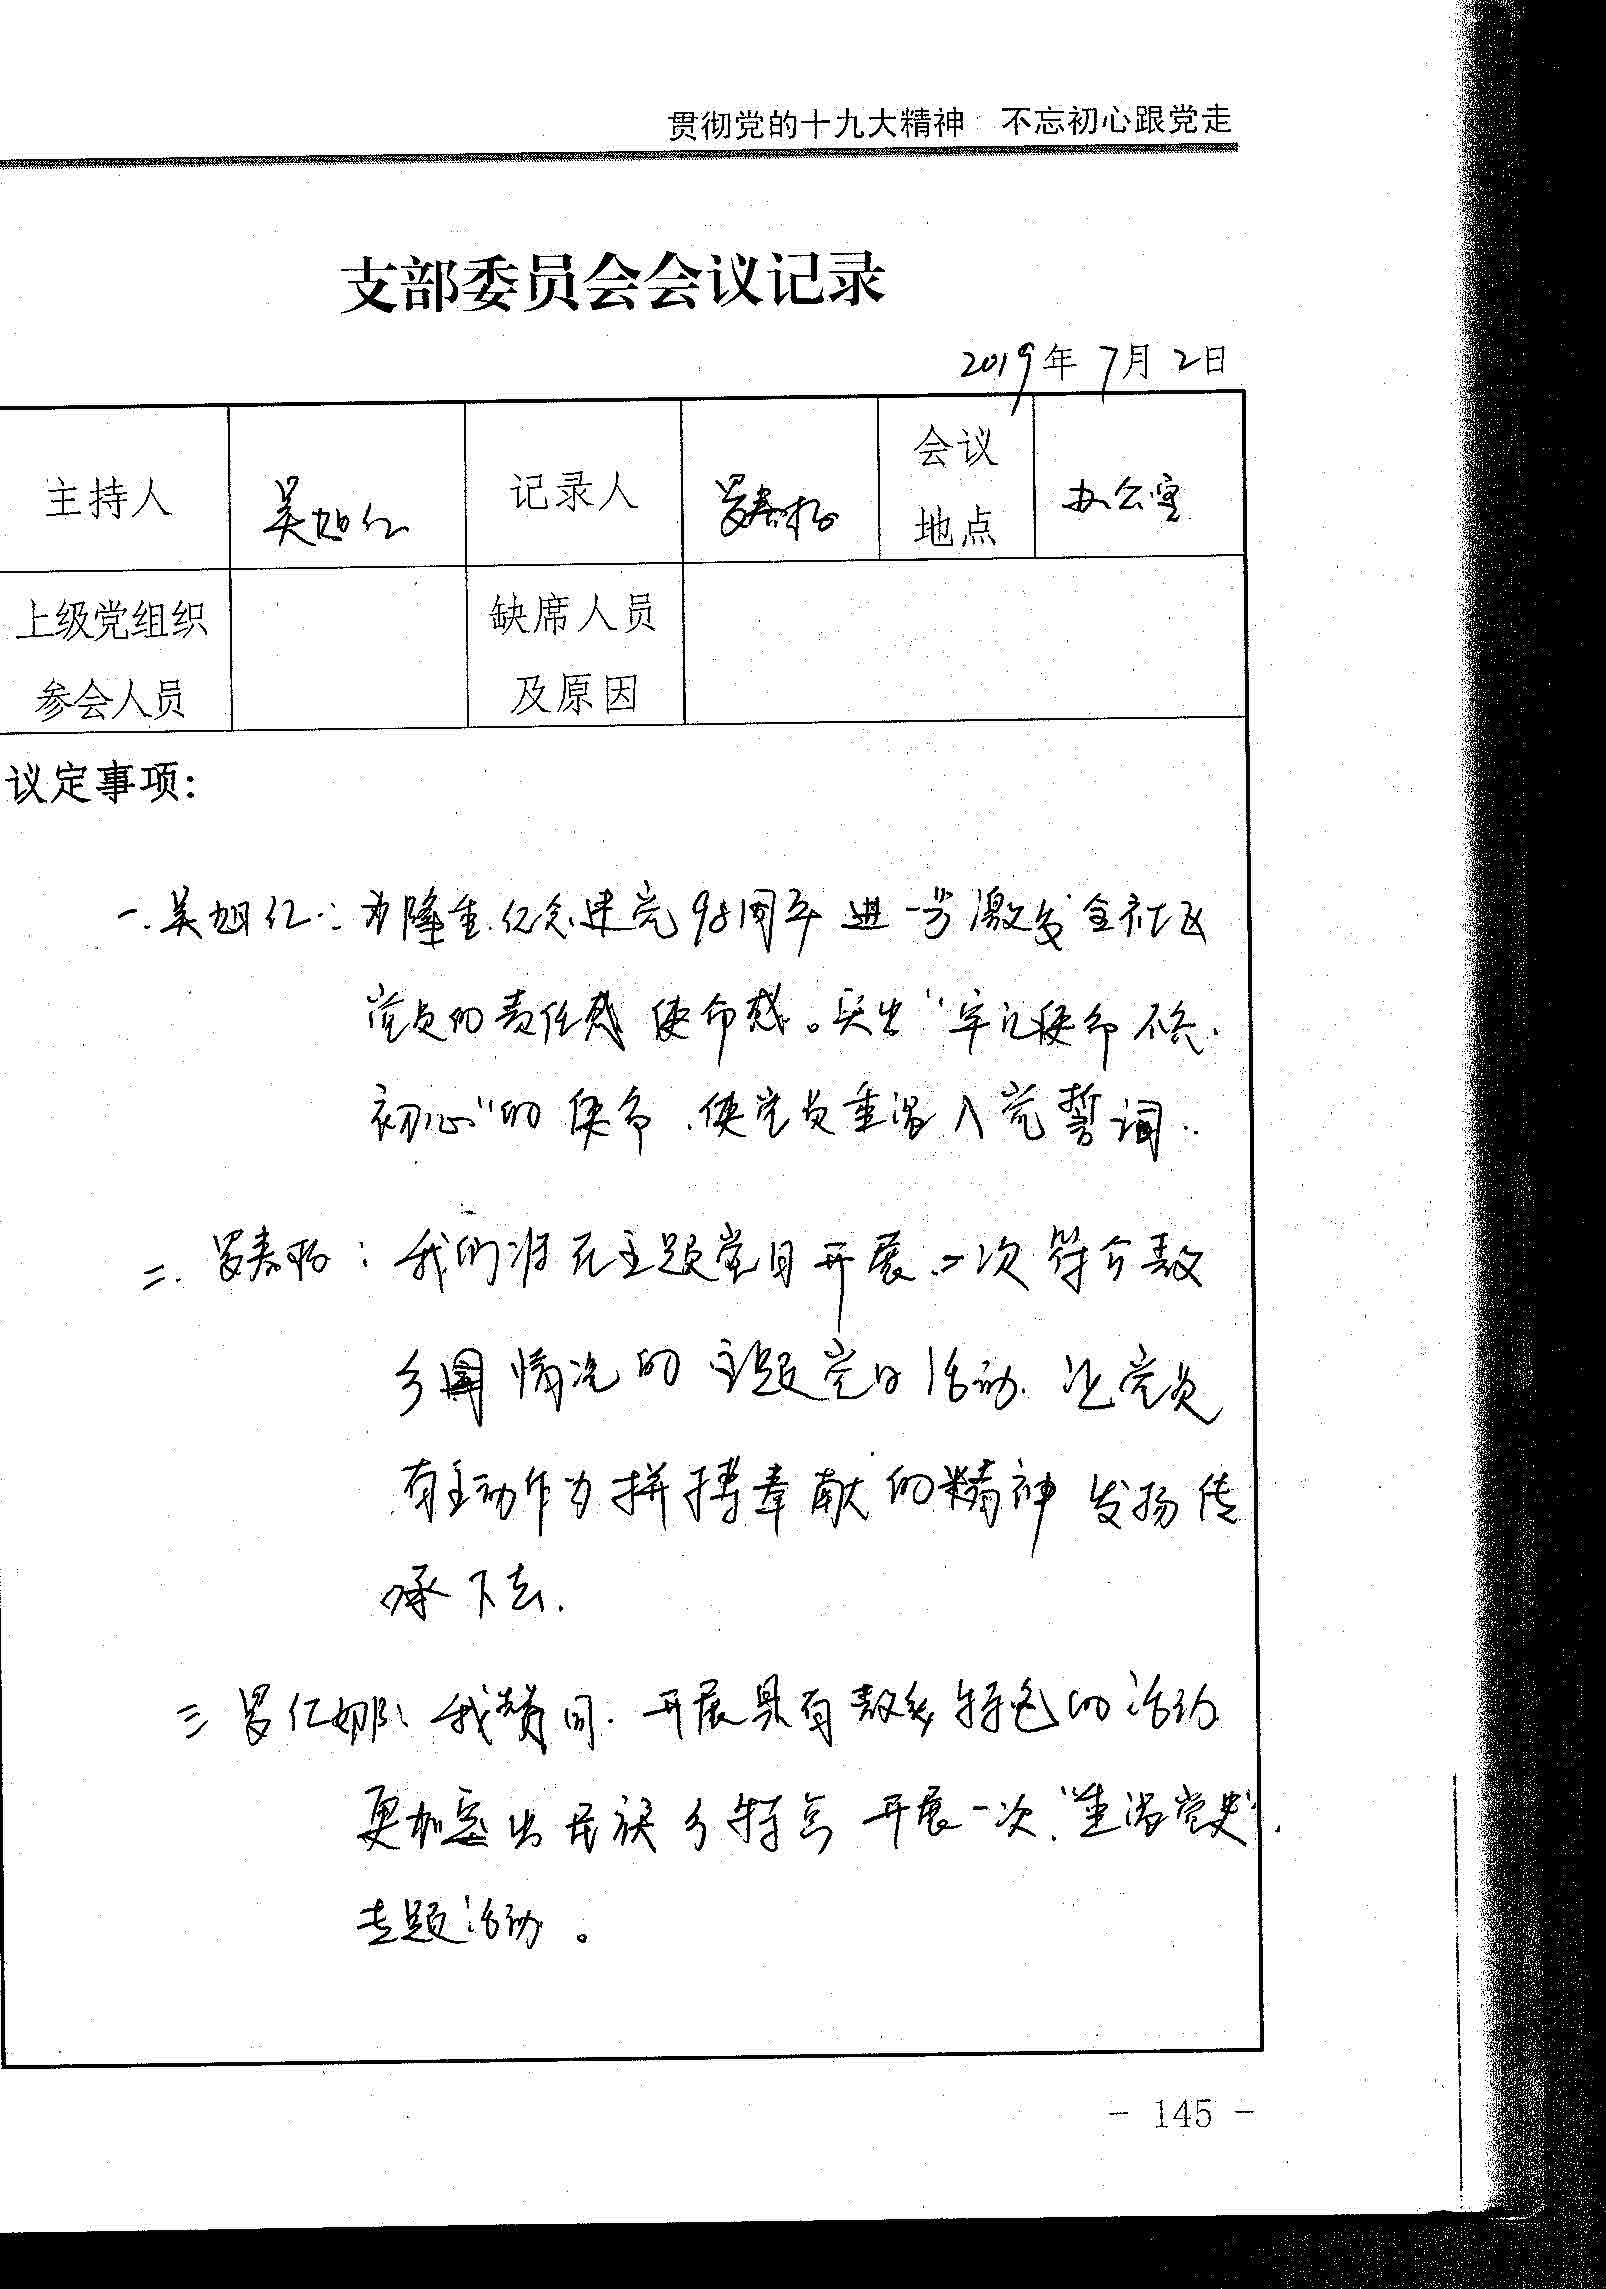 贯彻党的十九大精神 不忘初心跟党走
支部委员会会议记录
2019年7月2日
主持人 吴旭仁 记录人 罗春 会议地点 办公室
上级党组织参会人员 缺席人员及原因
议定事项:
一.吴旭仁:为隆重纪念建党98周年 进一步激发全社区
党员的责任感 使命感。突出"牢记使命 不忘
初心"的使命.使党员重温入党誓词.
二.罗春:我们将在主题党日开展一次符合敖
乡 情况的主题党日活动.让党员
有主动作为拼搏奉献的精神 发扬传
承下去.
三 罗仁娜:我赞同.开展具有敖乡特色的活动
更加突出民族乡特点 开展一次"重温党史"
专题活动。
- 145 -